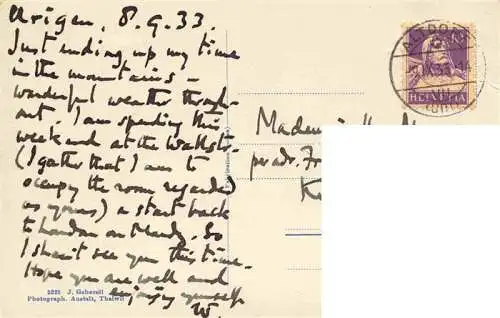 Arigen, 8.9.33.
Just ending up my time
in the mountains –
wonderful weather through-
out. I am spending this
weekend at the
(I gather that I am to
occupy the room regarded
as yours) & start back
to London on Monday. So
I shan't see you this time.
Hope you are well and
enjoying yourself
W.
5225 J. Gaberell
Photograph. Anstalt, Thalwil
ALTDORF
HELVETIA